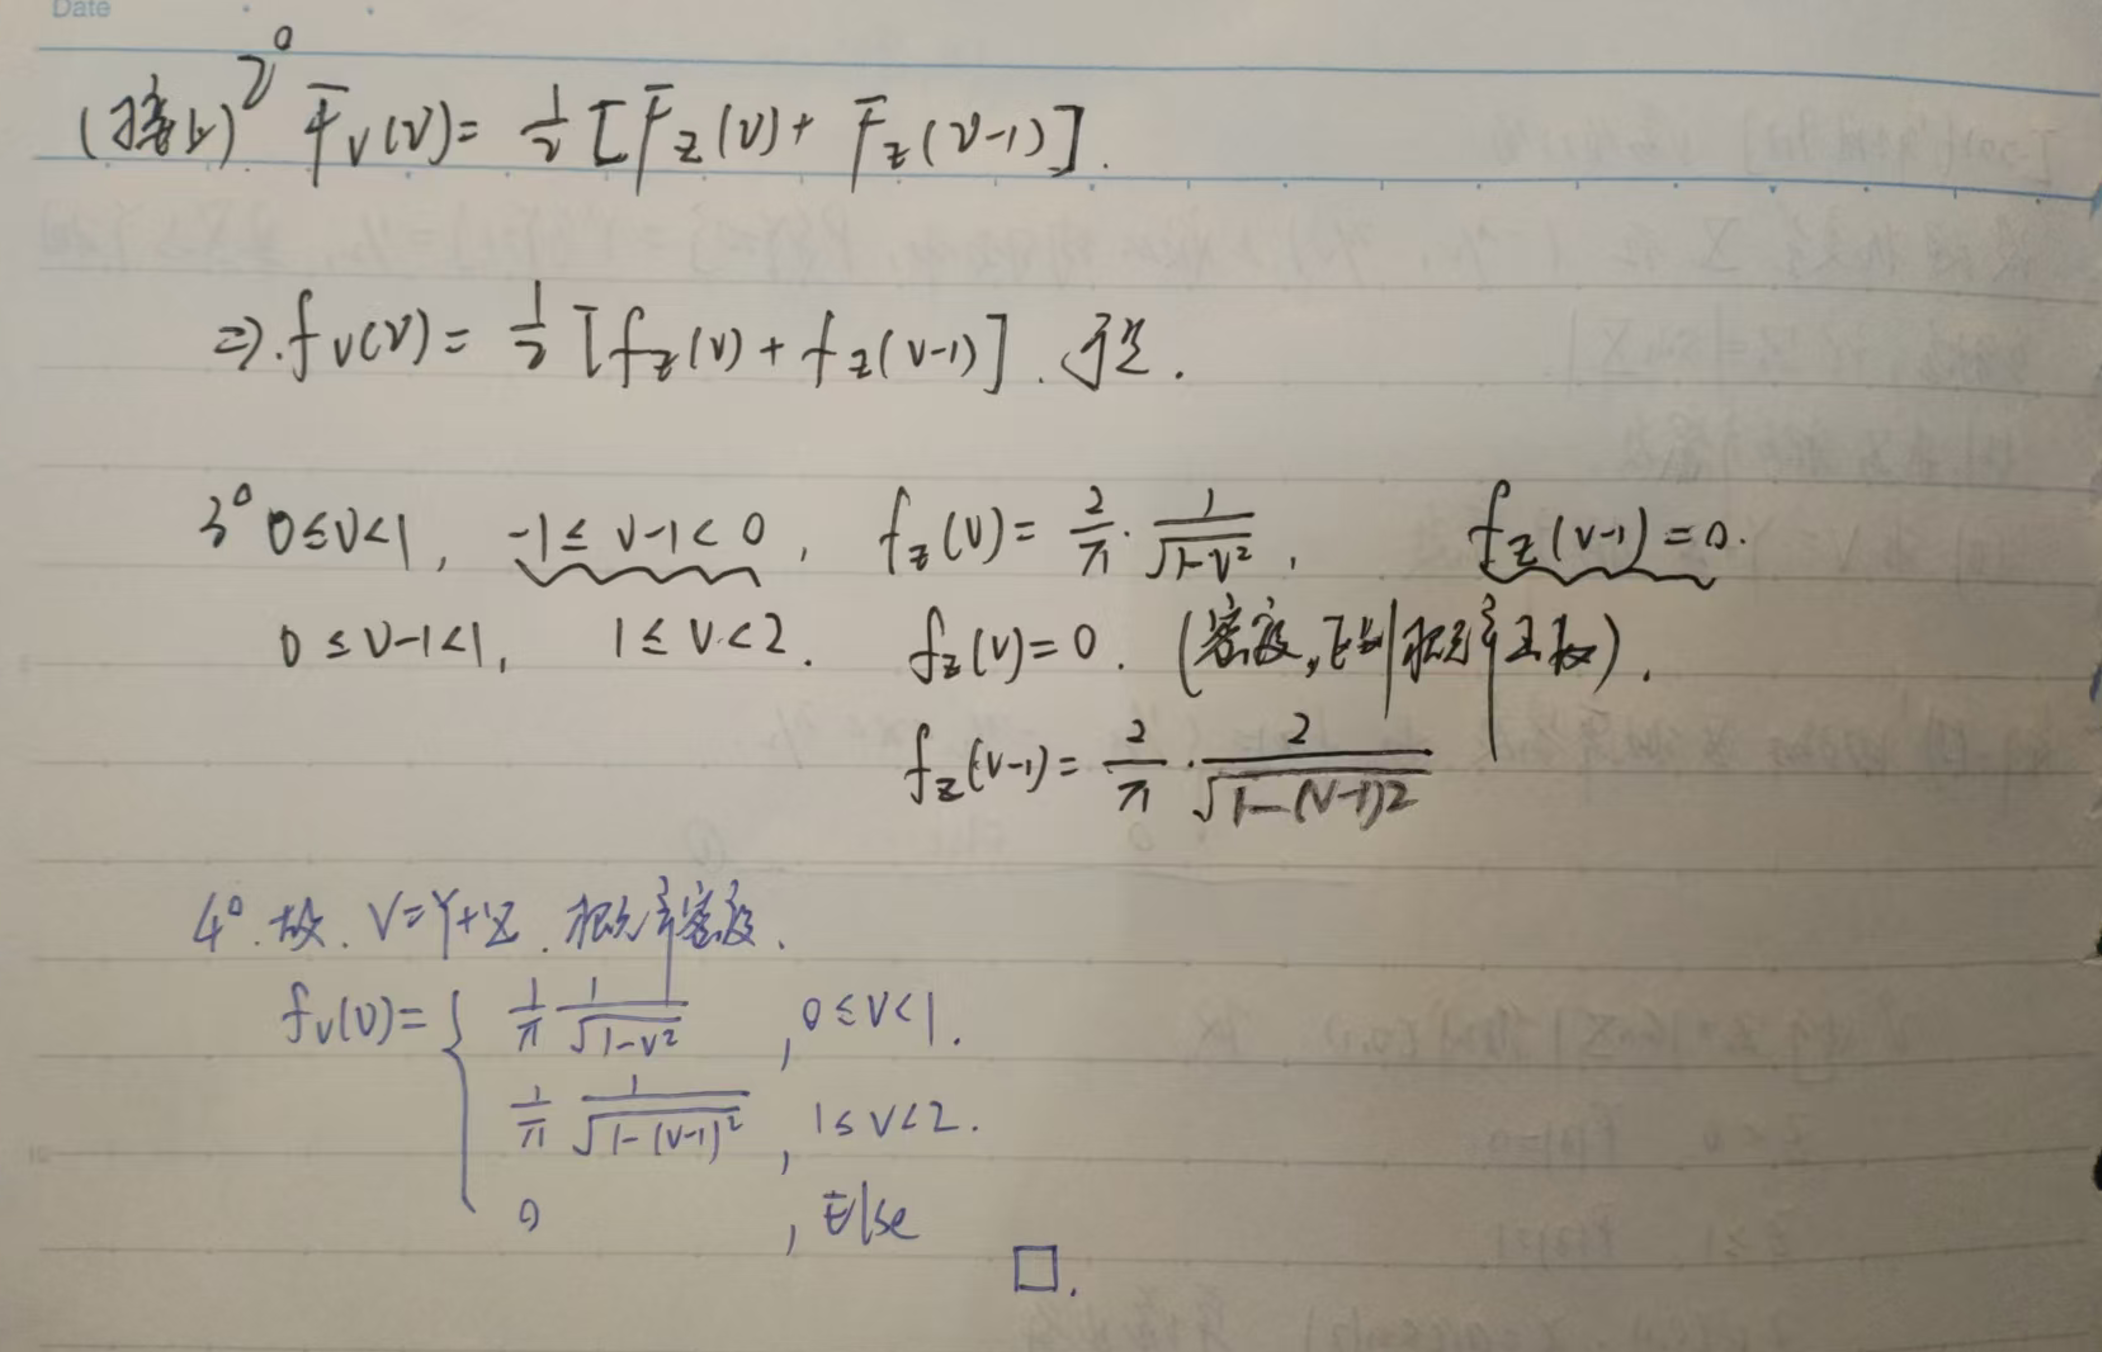 Date
(接上) 2° F_V(v) = 1/2 [F_Z(v) + F_Z(v-1)].
⇒ f_V(v) = 1/2 [f_Z(v) + f_Z(v-1)].
3° 0≤v<1, -1≤v-1<0, f_Z(v) = 2/π · 1/√(1-v²), f_Z(v-1)=0.
0≤v-1<1, 1≤v<2. f_Z(v)=0. (密度, 概率
f_Z(v-1) = 2/π · 2/√(1-(v-1)2)
4°. 故. V=Y+Z. 概率密度.
f_V(v) = { 1/π 1/√(1-v²), 0≤v<1.
1/π 1/√(1-(v-1)²), 1≤v<2.
0, Else
□.